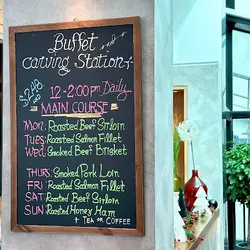 Buffet
carving Station
$248
12 - 2:00 pm Daily
MAIN COURSE
MON: Roasted Beef Sirloin
TUES: Roasted Salmon Fillet
WED: Smoked Beef Brisket
THURS: Smoked Pork Loin
FRI: Roasted Salmon Fillet
SAT: Roasted Beef Sirloin
SUN: Roasted Honey Ham
+ TEA OR COFFEE